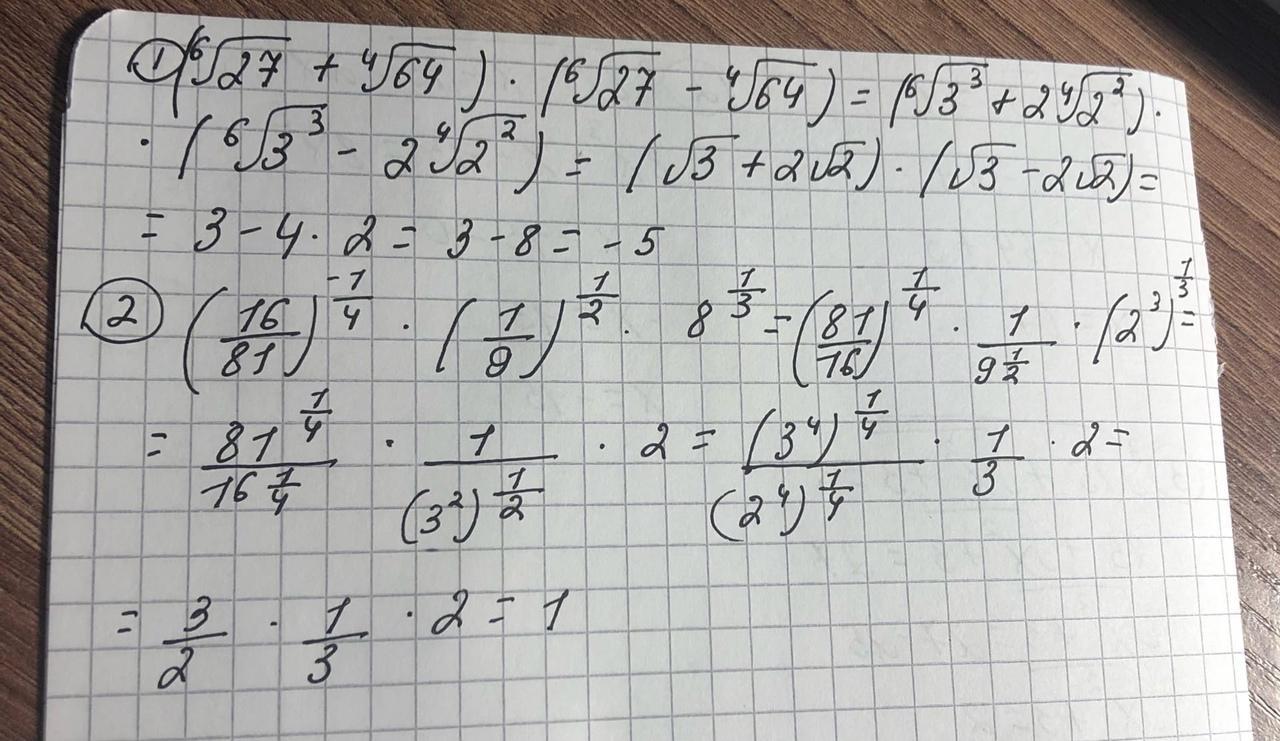 ① (⁶√27 + ⁴√64) · (⁶√27 - ⁴√64) = (⁶√3³ + 2⁴√2²) ·
· (⁶√3³ - 2⁴√2²) = (√3 + 2√2) · (√3 - 2√2) =
= 3 - 4 · 2 = 3 - 8 = -5
② (16/81)^(-1/4) · (1/9)^(1/2) · 8^(1/3) = (81/16)^(1/4) · 1/9^(1/2) · (2³)^(1/3) =
= 81^(1/4)/16^(1/4) · 1/(3²)^(1/2) · 2 = (3⁴)^(1/4)/(2⁴)^(1/4) · 1/3 · 2 =
= 3/2 · 1/3 · 2 = 1